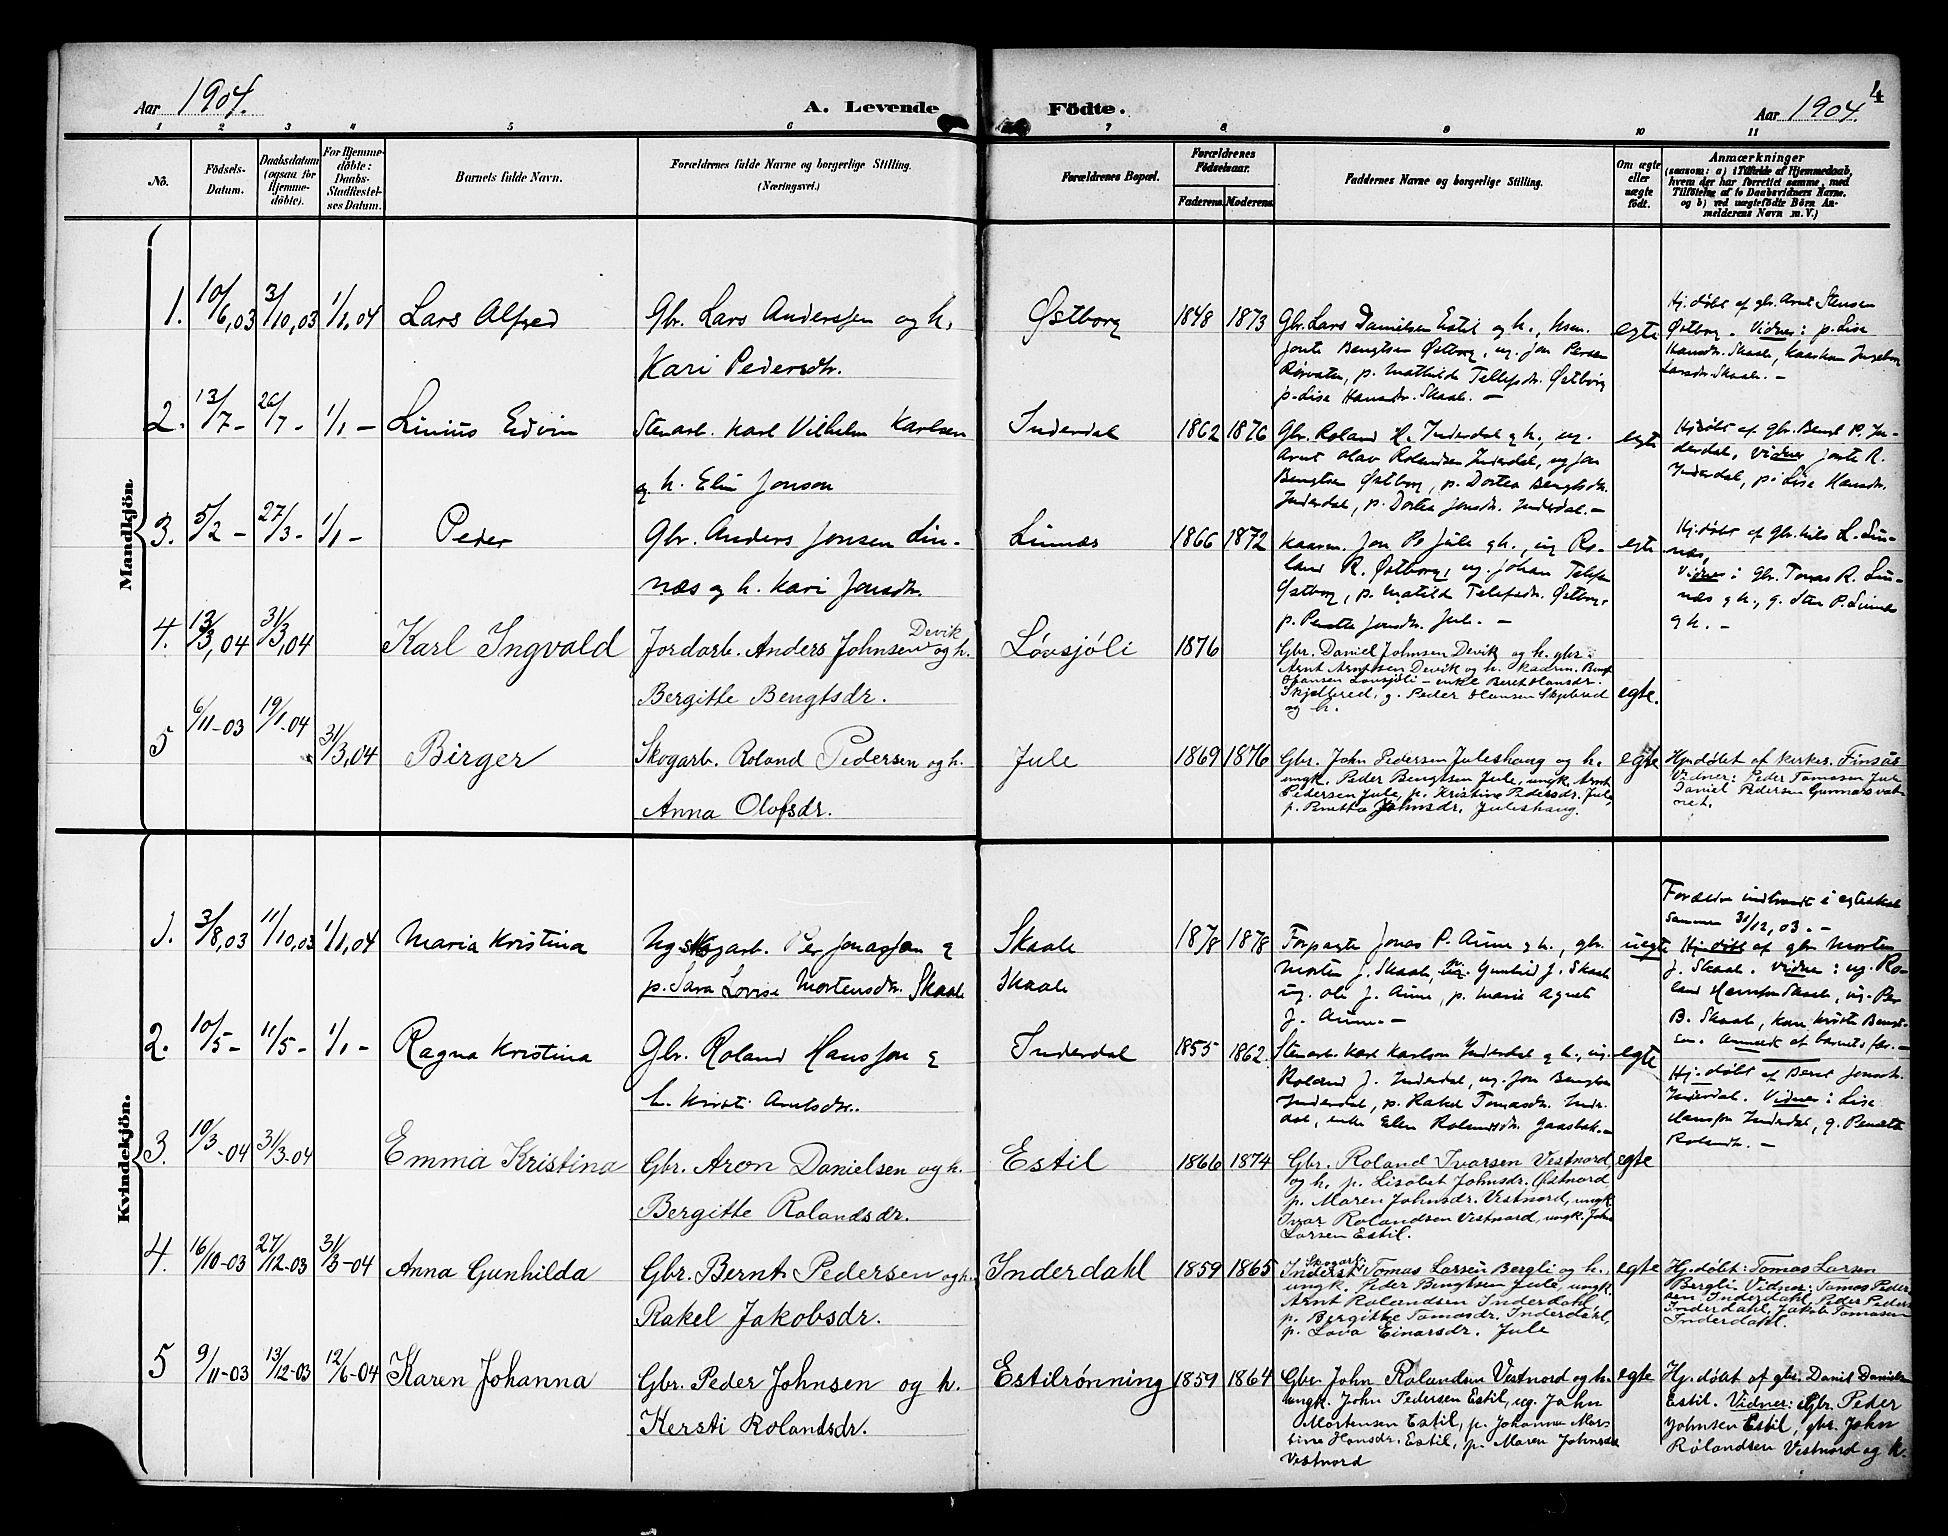 Aar 1904.
A. Levende Födte.
Aar 1904.
4
1 2 3 4 5 6 7 8 9 10 11
No.
Födsels-
Datum.
Daabsdatum
(ogsaa for
Hjemme-
döbte).
For Hjemme-
döbte:
Daabs-
Stadfæstel-
ses Datum.
Barnets fulde Navn.
Forældrenes fulde Navne og borgerlige Stilling.
(Næringsvei.)
Forældrenes Bopæl.
Forældrenes
Födselsaar.
Faderens. Moderens.
Faddernes Navne og borgerlige Stilling.
Om ægte
eller
uægte
födt.
Anmærkninger
(saasom: a) i Tilfælde af Hjemmedaab,
hvem der har forrettet samme, med
Tilföielse af to Daabsvidners Navne.
og b) ved uægtefödte Börn An-
melderens Navn m. V.)
Mandkjön
1. 10/6,03 3/10,03 1/1,04 Lars Alfred
Gbr. Lars Anderssen og h.
Kari Pedersdr.
Østborg 1848 1873
Gbr. Lars Danielsen Estil og h., hsm.
Jonte Bengtsen Østborg, ug. Jon Persen
Rørvatn, p. Mathilde Tellefsdr. Østborg
p. Lise Hansdr. Skaale. —
egte
Hj. døbt af gbr. Arnt Stensen
Østborg. Vidner: p. Lise
Hansdr. Skaale, Ingeborg
Larsdr. Skaale. —
2. 13/7 - 20/7 - 1/1 - Linius Edvin
Stenarb. Karl Vilhelm Karlsen
og h. Elin Jonson
Inderdal 1862 1876
Gbr. Roland H. Inderdal og h., ug.
Arnt Olav Rolandsen Inderdal, ug Jon
Bengtsen Østborg, p. Dortea Bengtsdr.
Inderdal, p. Dortea Jonsdr. Inderdal. —
egte
Hj døbt af gbr. Bengt P. In-
derdal, Vidner Jonte R.
Inderdal, p. Lise Hansdr.
3. 5/2 - 27/3 - 1/1 - Peder
Gbr. Anders Jonsen Lin-
næs og h. Kari Jonsdr.
Linnæs 1866 1872
Kaarm. Jon P. Jule og h., ug Ro-
land R. Østborg, ug. Johan Telefsen
Østborg, p. Matilde Telefsdr. Østborg.
p. Jonsdr. Jule. —
egte
Hj. døbt af Gbr. Nils L. Lin-
næs,
Vidner: Gbr. Tomas R. Lin-
næs og h., g. Sten P. Linnæs
og h. —
4. 13/3,04 31/3,04 Karl Ingvald
Jordarb. Anders Johnsen Devik og h.
Bergitte Bengtsdr.
Løvsjöli 1876
Gbr. Daniel Johnsen Devik og h. gbr.
Arnt Arntsen Devik og h. kaarm. Bengt
Løvsjöli - enke Beret Hansdr.
Skjelbred, g. Peder Hansen Skjelbred
og h.
egte.
5 6/11-03 19/1-04 31/3,04 Birger
Skogarb. Roland Pedersen og h.
Anna Olofsdr.
Jule 1869 1876
Gbr. John Pedersen Juleshaug og h.
ungk. Peder Bengtsen Jule, ungk. Arnt
Pedersen Jule, p. Kristine Pedersdr. Jule,
p. Johnsdr. Juleshaug.
egte
Hj. døbt af kirkes. Finsås
Vidner: Peder Tomasen Jule
Daniel Pedersen Gunnarsvat-
net.
Kvindekjön.
1. 3/8,03 11/10,03 1/1,04 Maria Kristina
Ug skogarb. Per Jonassen og
p. Sara Lovise Mortensdr. Skaale
Skaale
Skaale
1878 1878
Forpagter Jonas P. Aune og h., gbr.
Morten J. Skaale, p. Gunhild J. Skaale
ug. Ole J. Aune, p. Marie Agnet
J. Aune. —
uegte
Forældre indtraadt i egteskab
sammen 31/12,03. —
Hj. døbt af gbr Morten
J. Skaale. Vidner: ug. Ro-
land Skaale, ug. Per
B. Skaale,
Anmeldt af barnets far. —
2. 10/5 - 11/5 - 1/1 - Ragna Kristina
Gbr. Roland Hansson og
h. Kirsti Arntsdr.
Inderdal 1855 1862
Stenarb. Karl Karlson Inderdal og h., ug.
Roland J. Inderdal, ug. Jon Bengtsen
Inderdal, p. Rakel Tomasdr. Inder-
dal, enke Elen Rolandsdr. Gaasbak. —
egte
Hj. døbt af Beret Jonsdr.
Inderdal. Vidner: Lise
Inderdal, g. Benætte
Rolandsdr. —
3. 10/3-04 31/3-04 Emma Kristina
Gbr. Aron Danielsen og h.
Bergitte Rolandsdr.
Estil 1866 1874
Gbr. Roland Ivarsen Vestnord
og h. p. Lisabet Johnsdr. Østnord
p. Maren Johnsdr. Vestnord, ungk.
Ivar Rolandsen Vestnord, ungk. John
Larsen Estil.
egte
4. 16/10-03 27/12-03 31/3-04 Anna Gunhilda
Gbr. Bernt Pedersen og h.
Rakel Jakobsdr.
Inderdahl 1859 1865
Skogarb.
Inderst Tomas Larsen Bergli og h.
ungk. Peder Bengtsen Jule, ungk.
Arnt Rolandsen Inderdahl
p. Bergitte Tomasdr. Inderdahl,
p. Lova Einarsdr. Jule
egte
Hj. døbt: Tomas Larsen
Bergli. Vidner: Tomas Peder-
sen Inderdahl, Peder Peders.
Inderdahl, Jakob Tomasen
Inderdahl.
5 9/11-03 13/12-03 12/6-04 Karen Johanna
Gbr. Peder Johnsen og h.
Kersti Rolandsdr.
Estilrønning 1859 1864
Gbr John Rolandsen Vestnord og h.
ungk. John Pedersen Estil, ug. John
Mortensen Estil, p. Johanna Mar-
tina Hansdr. Estil, p. Maren Johnsdr.
Vestnord
egte
Hj. døbt af gbr. Daniel Danielsen
Estil. Vidner: Gbr. Peder
Johnsen Estil, gbr. John
Rolandsen Vestnord og h.